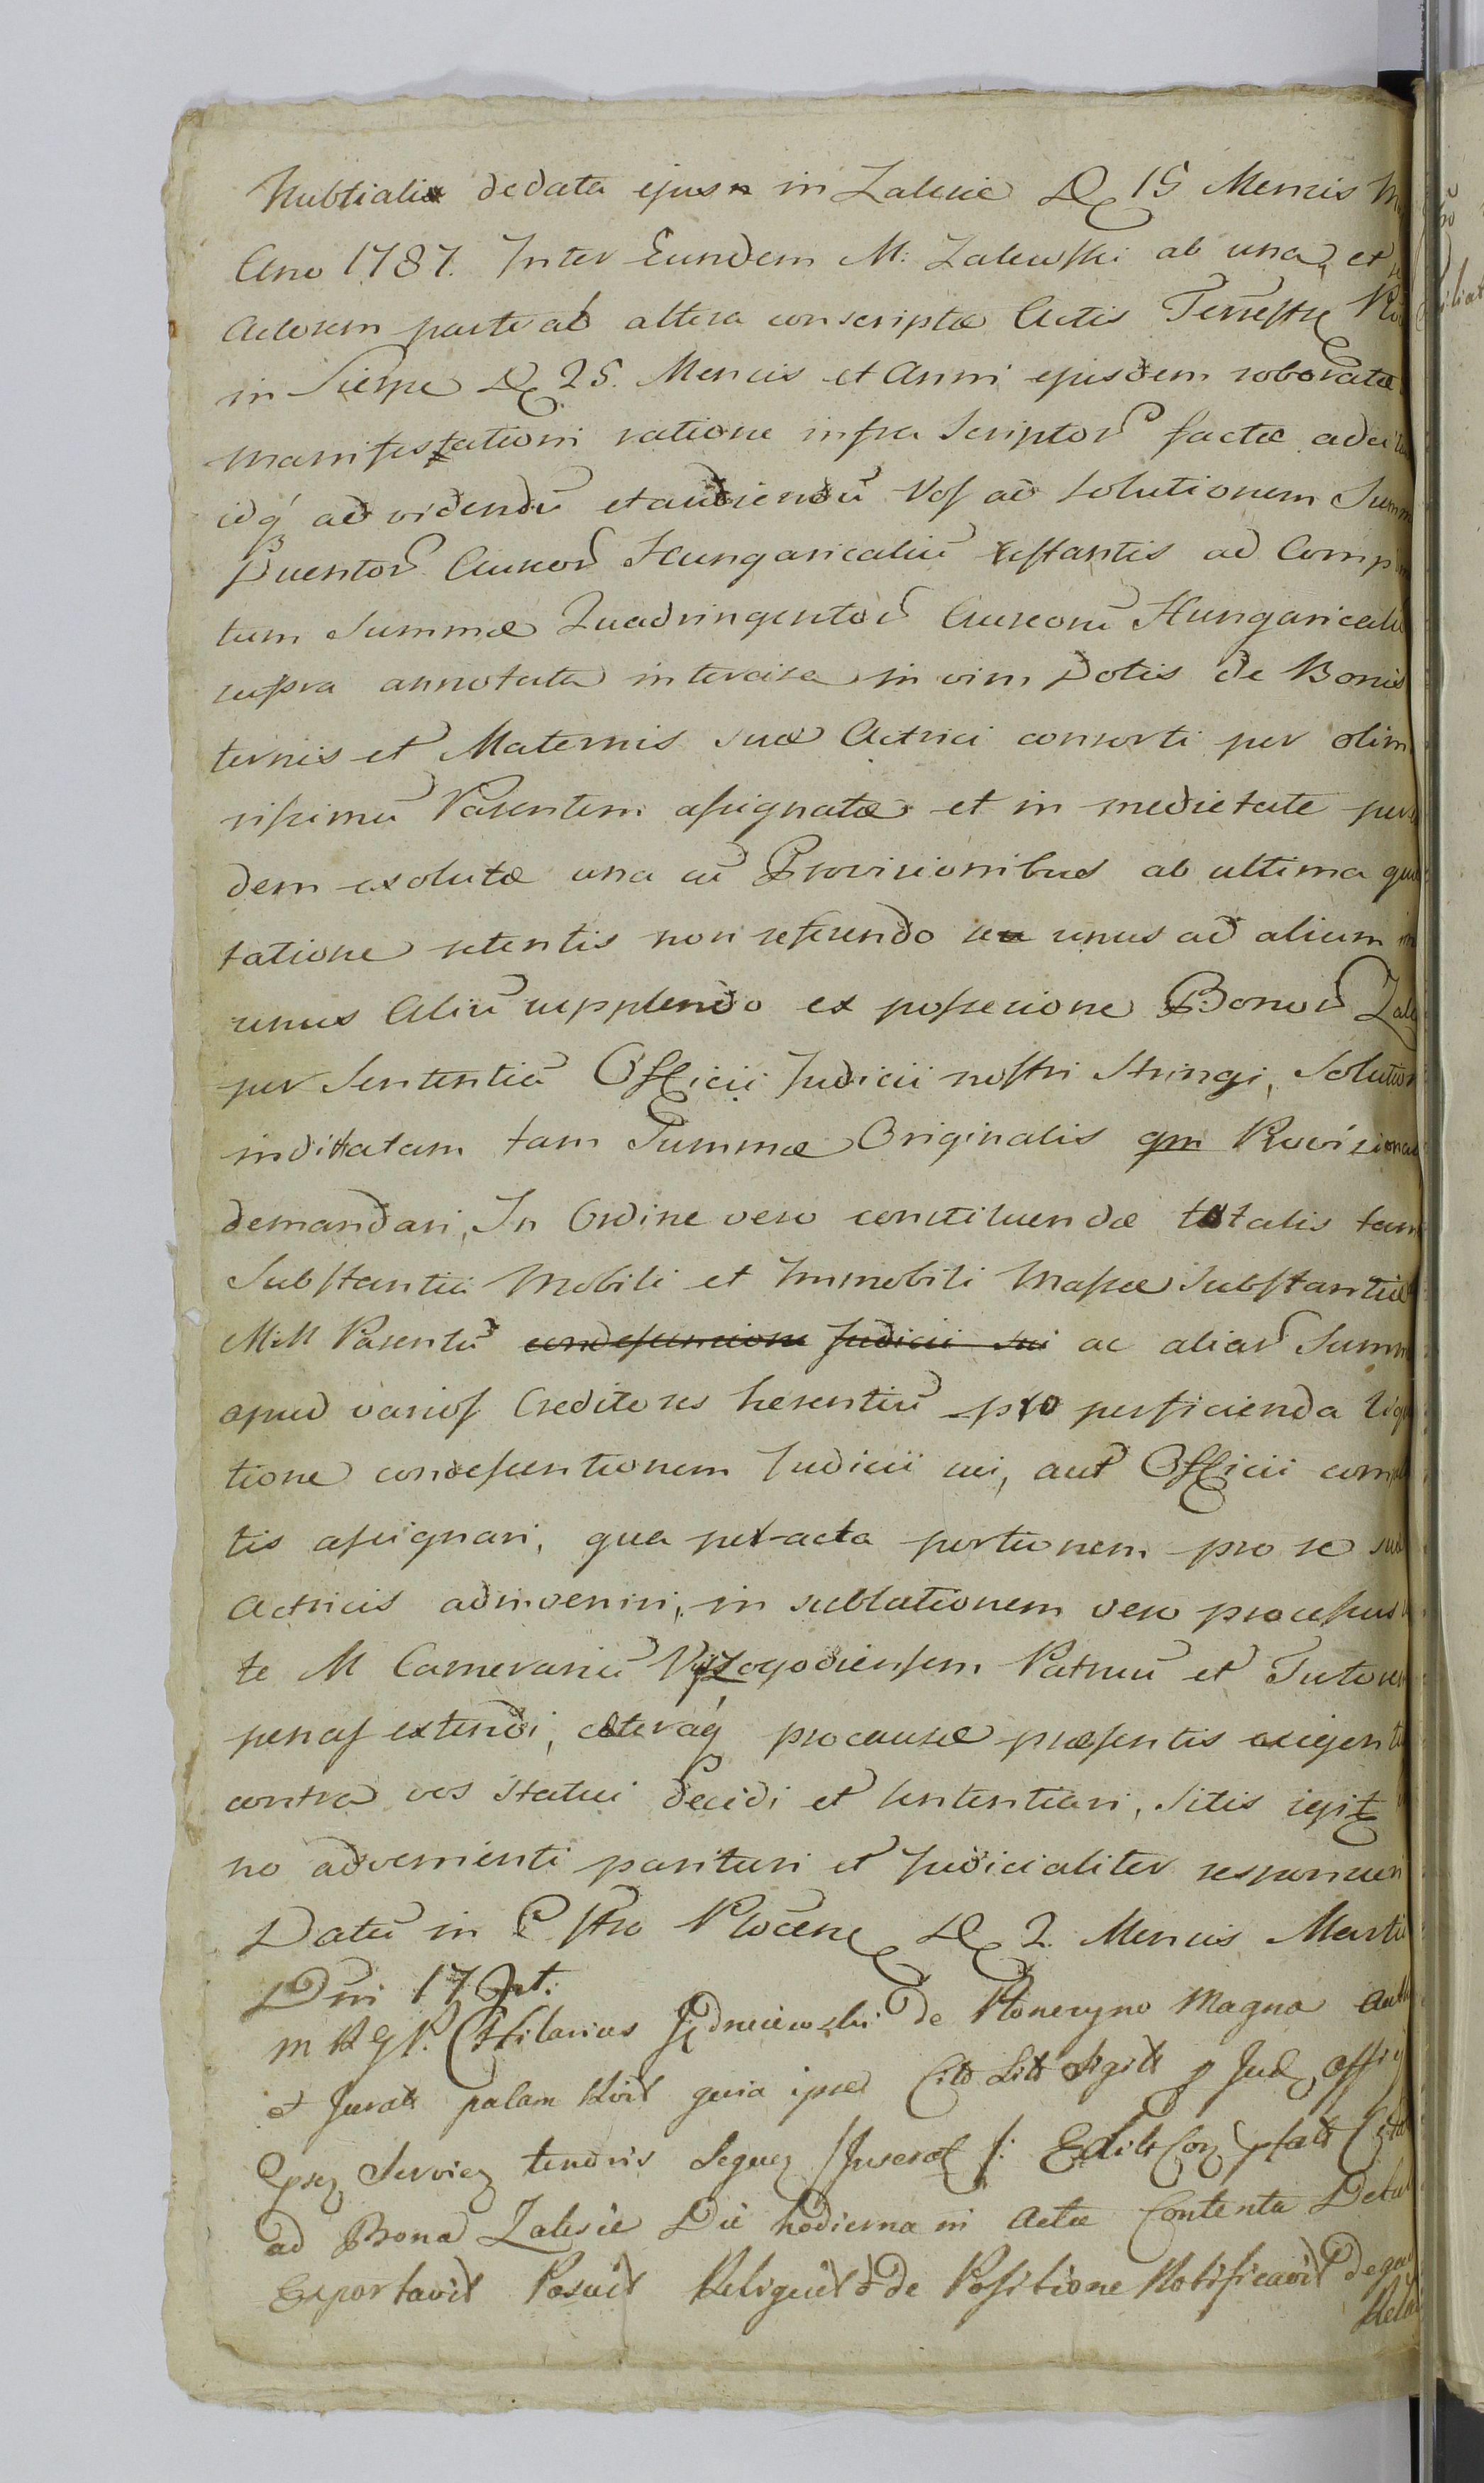 Nubtialis dedata ejusn in Zalesie D 15 Mensis M
Ano 1787. Inter Eundem M: Zalewski ab una, et
Actorem parte ab altera conscriptæ Actis Terrestr
in Sierpe D 25. Mensis et Anni ejusdem roboratæ
Manifestationi ratione infra scriptor factæ
idq ad videndū et audiendū Vos ad solutionem Sum
Ducentor Aureor Hungaricaliū restantis ad Comp
tum Summæ Quadringentor Aureorū Hungarical
supra annotata intercisa in vim Dotis de Bonis
ternis et Maternis suæ Actrici consorti per olim
rissimū Parentem assignatæ et in medietate per
dem exolutæ una cū Provisionibus ab ultima qui
tatione retentis non referendo se unus ad alium
unus Aliū supplendo ex possessione Bonor Zal
per Sententiā Officii Judicii nostri stringi, Solution
indilatam tam Summæ Originalis qm Provision
demandari, In Ordine vero constituendæ totalis tam
Substantia Mobili et Immobili Massæ Substantiæ
MM Parentū condescensione Judicii sui ac aliar Summ
apud varios Creditores herentiū pro perficienda liq
tione condescentionem Judicii sui, aut Officii comp
tis assignari, qua peracta portionem pro se
Actricis adinveniri, in sublationem vero processus
te M Camerariū Wyszogrodiensem Patruū et Tutorem
penas extendi, cæteraq pro causæ præsentis exigent
contra vos statui decidi et sententiari, Sitis igit
no advenienti parituri et Judicialiter responsuri
Datū in Cstro Plocen D 2. Mensis Marti
Dni 17
Hilarius de Magna
et Jurat palam quia ipse Jud
Servien Seque
ad Bona Zalesie Die hodierna in Actæ Contenta Detul
Exportavit Posuit Reliquit & de Positione Notificavit
Rela